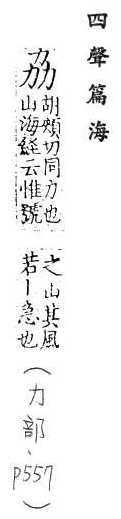 四聲篇海
劦
胡頰切同力也
山海經云惟號
之山其風
若丨急也
(力部、p557)